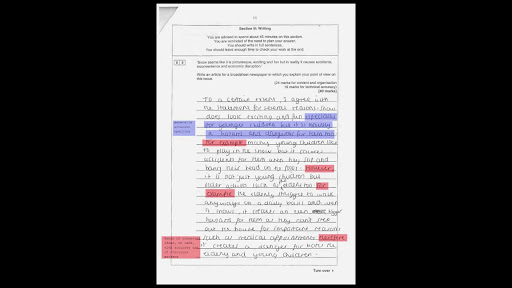 Section B: Writing
You are advised to spend about 45 minutes on this section.
You are reminded of the need to plan your answer.
You should write in full sentences.
You should leave enough time to check your work at the end.
'Snow seems like it is picturesque, exciting and fun but in reality it causes accidents,
inconvenience and economic disruption.'
Write an article for a broadsheet newspaper in which you explain your point of view on
this issue.
(24 marks for content and organisation
16 marks for technical accuracy)
[40 marks]
To a certain extent, I agree with
the statement for several reasons. Snow
does look exciting and fun especially
for younger children but it is mainly
a hazard and dangerous for them too
for example many young children like
to play in the snow but it causes
accidents for them when they slip and
bang their head on the floor. However,
it is not just young children but
older adults such as elderlies for
example the elderly struggle to walk
anyways on a daily basis and when
it snows, it creates an even bigger
hazard for them as they can't step
out the house for important reasons
such as medical appointments therefore
it creates a danger for both the
elderly and young children.
Turn over